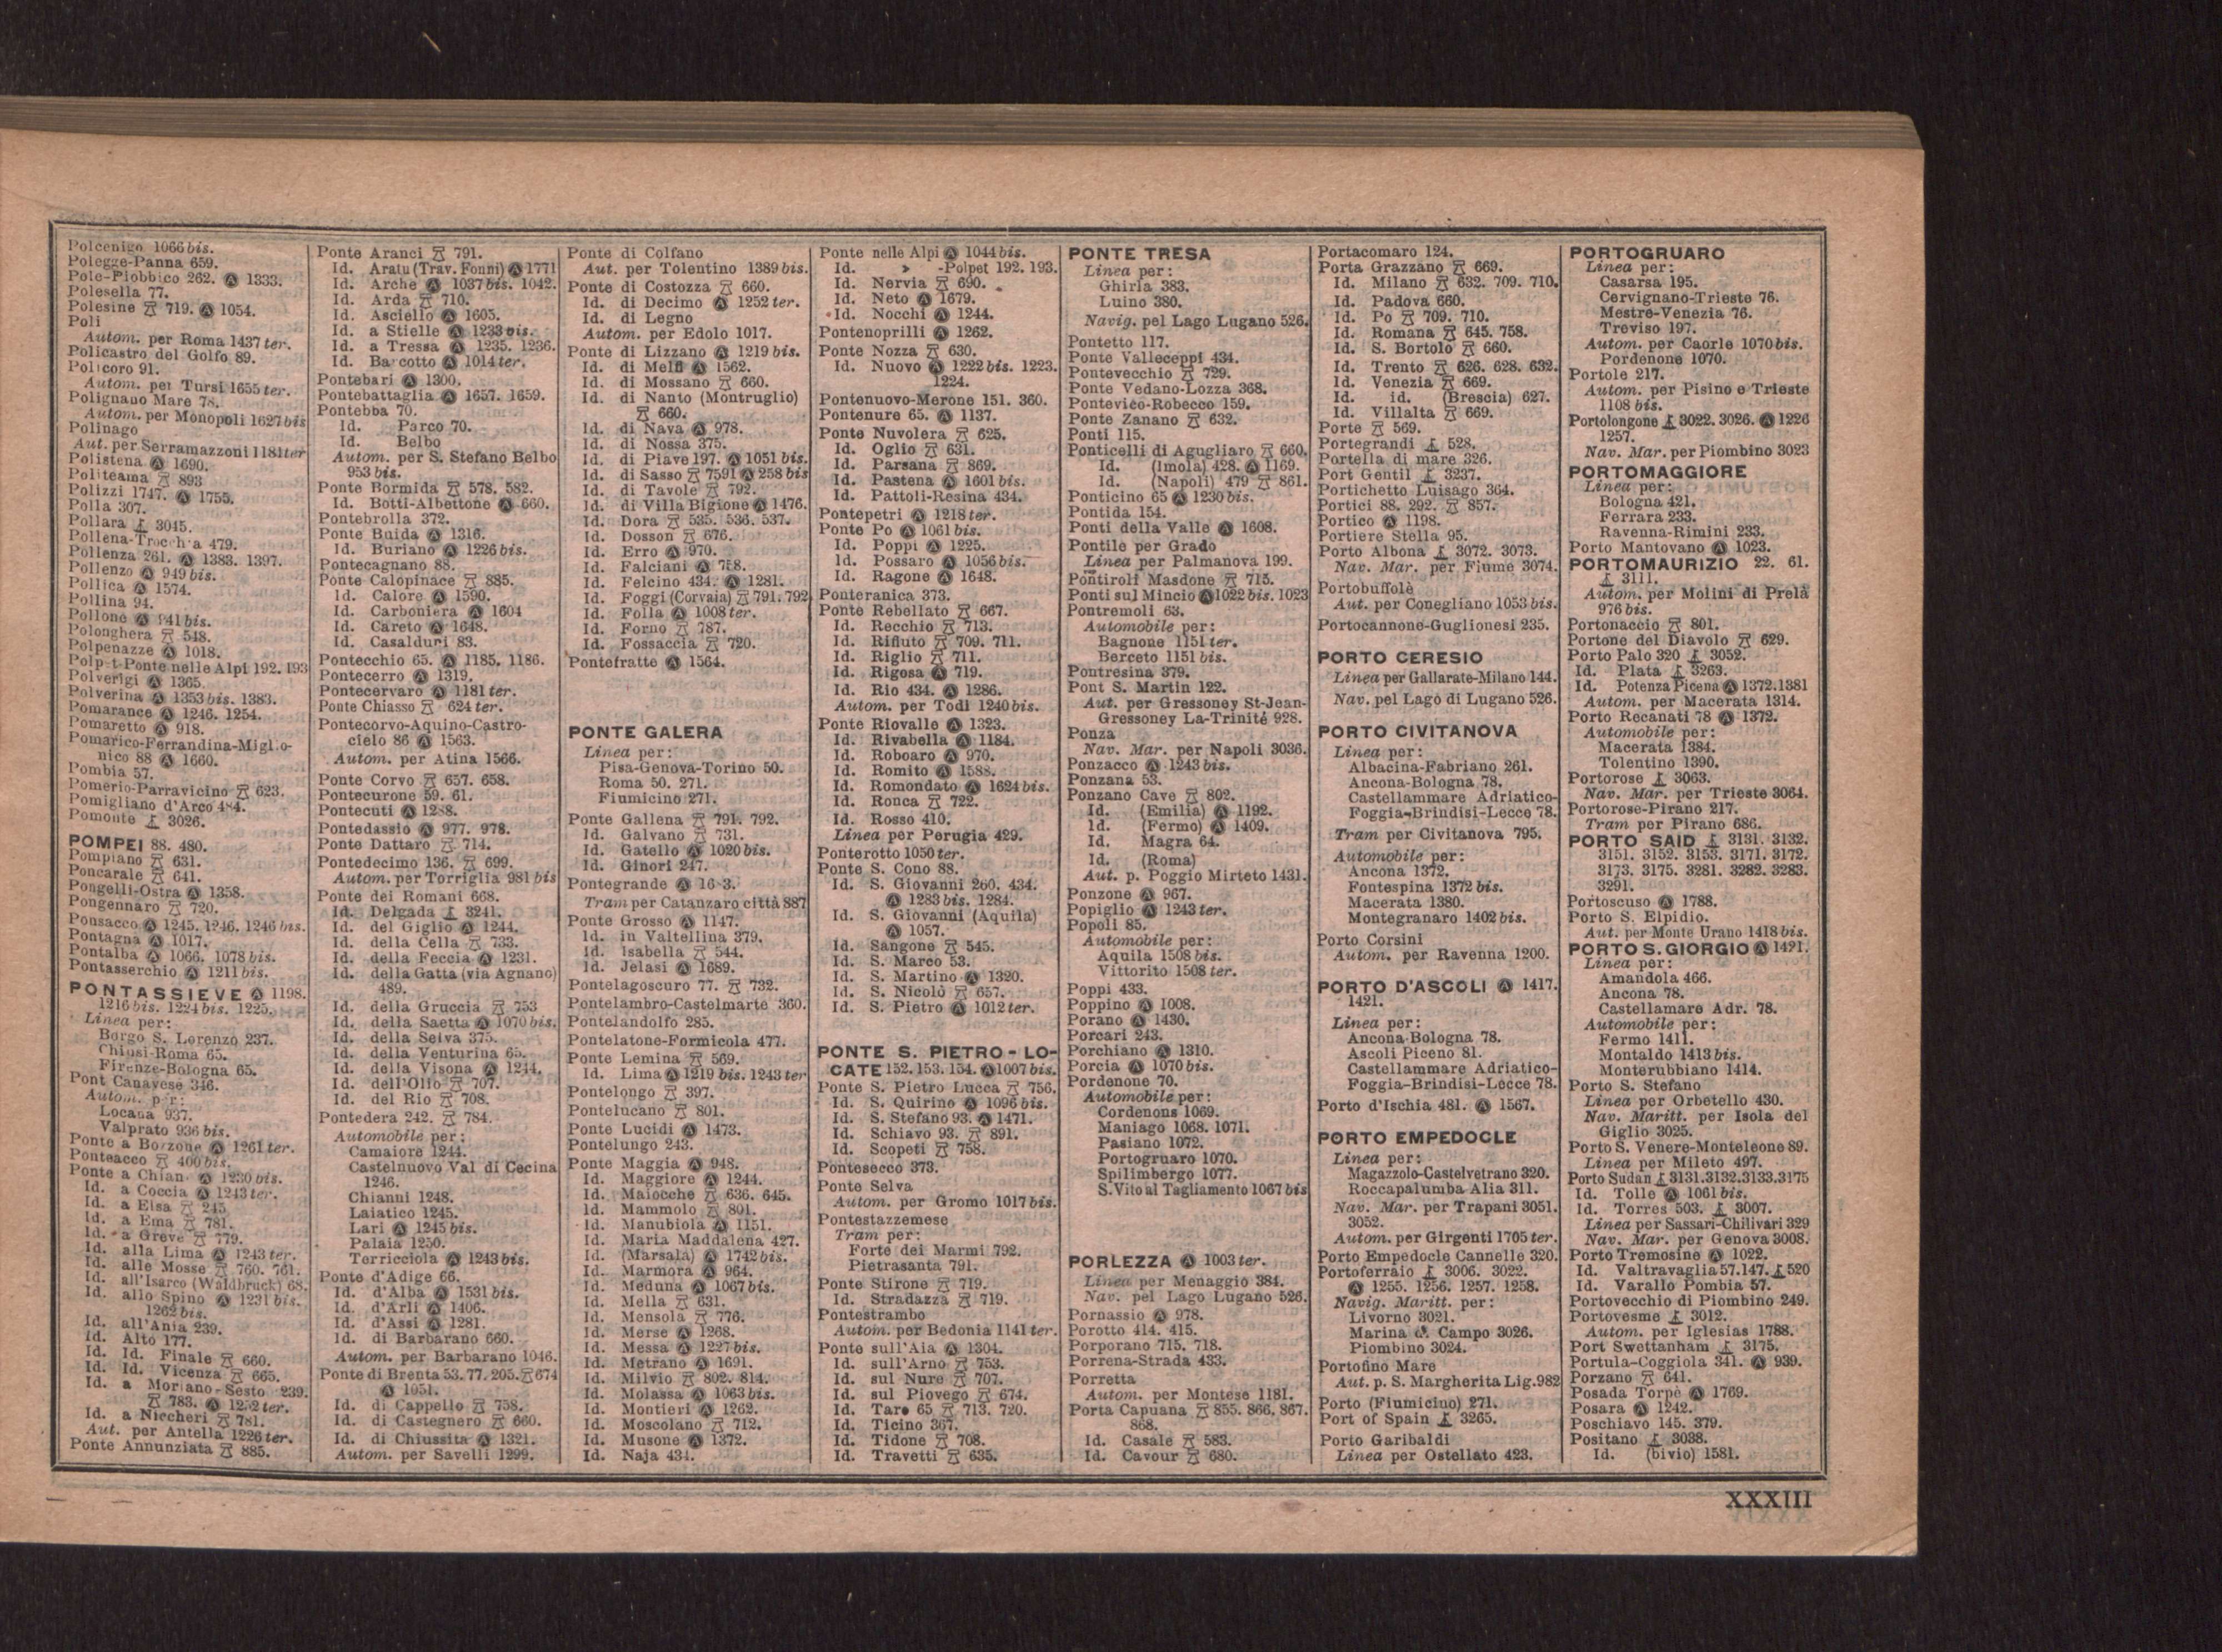 Polcenigo 1066 bis.
Polegge-Panna 659.
Pole-Piobbico 262. Ⓐ 1333.
Polesella 77.
Polesine 719. Ⓐ 1054.
Poli
Autom. per Roma 1437 ter.
Policastro del Golfo 89.
Policoro 91.
Autom. per Tursi 1655 ter.
Polignano Mare 78.
Autom. per Monopoli 1627 bis
Polinago
Aut. per Serramazzoni 1181 ter
Polistena Ⓐ 1690.
Politeama 893
Polizzi 1747. Ⓐ 1755.
Polla 307.
Pollara 3045.
Pollena-Trocchia 479.
Pollenza 261. Ⓐ 1383. 1397.
Pollenzo Ⓐ 949 bis.
Pollica Ⓐ 1574.
Pollina 94.
Pollone Ⓐ 941 bis.
Polonghera 548.
Polpenazze Ⓐ 1018.
Polpet-Ponte nelle Alpi 192. 193
Polverigi Ⓐ 1365.
Polverina Ⓐ 1353 bis. 1383.
Pomarance Ⓐ 1246. 1254.
Pomaretto Ⓐ 918.
Pomarico-Ferrandina-Miglio-
nico 88 Ⓐ 1660.
Pombia 57.
Pomerio-Parravicino 623.
Pomigliano d'Arco 484.
Pomonte 3026.
POMPEI 88. 480.
Pompiano 631.
Poncarale 641.
Pongelli-Ostra Ⓐ 1358.
Pongennaro 720.
Ponsacco Ⓐ 1245. 1246. 1246 bis.
Pontagna Ⓐ 1017.
Pontalba Ⓐ 1066. 1078 bis.
Pontasserchio Ⓐ 1211 bis.
PONTASSIEVE Ⓐ 1198.
1216 bis. 1224 bis. 1225.
Linea per:
Borgo S. Lorenzo 237.
Chiusi-Roma 65.
Firenze-Bologna 65.
Pont Canavese 346.
Autom. per:
Locana 937.
Valprato 936 bis.
Ponte a Bozzone Ⓐ 1261 ter.
Ponteacco 400 bis.
Ponte a Chiani Ⓐ 1230 bis.
Id. a Coccia Ⓐ 1243 ter.
Id. a Elsa 245
Id. a Ema 781.
Id. a Greve 779.
Id. alla Lima Ⓐ 1243 ter.
Id. alle Mosse 760. 761.
Id. all'Isarco (Waldbruck) 68.
Id. allo Spino Ⓐ 1231 bis.
1262 bis.
Id. all'Ania 239.
Id. Alto 177.
Id. Id. Finale 660.
Id. Id. Vicenza 665.
Id. a Moriano-Sesto 239.
783. Ⓐ 1252 ter.
Id. a Niccheri 781.
Aut. per Antella 1226 ter.
Ponte Annunziata 885.
Ponte Aranci 791.
Id. Aratu (Trav. Fonni) Ⓐ 1771
Id. Arche Ⓐ 1037 bis. 1042.
Id. Arda 710.
Id. Asciello Ⓐ 1605.
Id. a Stielle Ⓐ 1233 bis.
Id. a Tressa Ⓐ 1235. 1236.
Id. Barcotto Ⓐ 1014 ter.
Pontebari Ⓐ 1300.
Pontebattaglia Ⓐ 1657. 1659.
Pontebba 70.
Id. Parco 70.
Id. Belbo
Autom. per S. Stefano Belbo
953 bis.
Ponte Bormida 578. 582.
Id. Botti-Albettone Ⓐ 660.
Pontebrolla 372.
Ponte Buida Ⓐ 1316.
Id. Buriano Ⓐ 1226 bis.
Pontecagnano 88.
Ponte Calopinace 885.
Id. Calore Ⓐ 1590.
Id. Carboniera Ⓐ 1604
Id. Careto Ⓐ 1648.
Id. Casalduri 83.
Pontecchio 65. Ⓐ 1185. 1186.
Pontecerro Ⓐ 1319.
Pontecervaro Ⓐ 1181 ter.
Ponte Chiasso 624 ter.
Pontecorvo-Aquino-Castro-
cielo 86 Ⓐ 1563.
Autom. per Atina 1566.
Ponte Corvo 657. 658.
Pontecurone 59. 61.
Pontecuti Ⓐ 1288.
Pontedassio Ⓐ 977. 978.
Ponte Dattaro 714.
Pontedecimo 136. 699.
Autom. per Torriglia 981 bis
Ponte dei Romani 668.
Id. Delgada 3241.
Id. del Giglio Ⓐ 1244.
Id. della Cella 733.
Id. della Feccia Ⓐ 1231.
Id. della Gatta (via Agnano)
489.
Id. della Gruccia 753
Id. della Saetta Ⓐ 1070 bis.
Id. della Selva 375.
Id. della Venturina 65.
Id. della Visona Ⓐ 1244.
Id. dell'Olio 707.
Id. del Rio 708.
Pontedera 242. 784.
Automobile per:
Camaiore 1244.
Castelnuovo Val di Cecina
1246.
Chianni 1248.
Laiatico 1245.
Lari Ⓐ 1245 bis.
Palaia 1250.
Terricciola Ⓐ 1243 bis.
Ponte d'Adige 66.
Id. d'Alba Ⓐ 1531 bis.
Id. d'Arli Ⓐ 1406.
Id. d'Assi Ⓐ 1281.
Id. di Barbarano 660.
Autom. per Barbarano 1046.
Ponte di Brenta 53. 77. 205. 674
Ⓐ 1051.
Id. di Cappello 758.
Id. di Castegnero 660.
Id. di Chiussita Ⓐ 1321.
Autom. per Savelli 1299.
Ponte di Colfano
Aut. per Tolentino 1389 bis.
Ponte di Costozza 660.
Id. di Decimo Ⓐ 1252 ter.
Id. di Legno
Autom. per Edolo 1017.
Ponte di Lizzano Ⓐ 1219 bis.
Id. di Melfi Ⓐ 1562.
Id. di Mossano 660.
Id. di Nanto (Montruglio)
660.
Id. di Nava Ⓐ 978.
Id. di Nossa 375.
Id. di Piave 197. Ⓐ 1051 bis.
Id. di Sasso 7591 Ⓐ 258 bis
Id. di Tavole 792.
Id. di Villa Bigione Ⓐ 1476.
Id. Dora 535. 536. 537.
Id. Dosson 676.
Id. Erro Ⓐ 970.
Id. Falciani Ⓐ 758.
Id. Felcino 434. Ⓐ 1281.
Id. Foggi (Corvaia) 791. 792
Id. Folla Ⓐ 1008 ter.
Id. Forno 787.
Id. Fossaccia 720.
Pontefratte Ⓐ 1564.
PONTE GALERA
Linea per:
Pisa-Genova-Torino 50.
Roma 50. 271.
Fiumicino 271.
Ponte Gallena 791. 792.
Id. Galvano 731.
Id. Gatello Ⓐ 1020 bis.
Id. Ginori 247.
Pontegrande Ⓐ
Tram per Catanzaro città 887
Ponte Grosso Ⓐ 1147.
Id. in Valtellina 379.
Id. Isabella 544.
Id. Jelasi Ⓐ 1689.
Pontelagoscuro 77. 732.
Pontelambro-Castelmarte 360.
Pontelandolfo 285.
Pontelatone-Formicola 477.
Ponte Lemina 569.
Id. Lima Ⓐ 1219 bis. 1243 ter
Pontelongo 397.
Pontelucano 801.
Ponte Lucidi Ⓐ 1473.
Pontelungo 243.
Ponte Maggia Ⓐ 948.
Id. Maggiore Ⓐ 1244.
Id. Maiocche 636. 645.
Id. Mammolo 801.
Id. Manubiola Ⓐ 1151.
Id. Maria Maddalena 427.
Id. (Marsala) Ⓐ 1742 bis.
Id. Marmora Ⓐ 964.
Id. Meduna Ⓐ 1067 bis.
Id. Mella 631.
Id. Mensola 776.
Id. Merse Ⓐ 1268.
Id. Messa Ⓐ 1227 bis.
Id. Metrano Ⓐ 1691.
Id. Milvio 802. 814.
Id. Molassa Ⓐ 1063 bis.
Id. Montieri Ⓐ 1262.
Id. Moscolano 712.
Id. Musone Ⓐ 1372.
Id. Naja 434.
Ponte nelle Alpi Ⓐ 1044 bis.
Id. » -Polpet 192. 193.
Id. Nervia 690.
Id. Neto Ⓐ 1679.
Id. Nocchi Ⓐ 1244.
Pontenoprilli Ⓐ 1262.
Ponte Nozza 630.
Id. Nuovo Ⓐ 1222 bis. 1223.
1224.
Pontenuovo-Merone 151. 360.
Pontenure 65. Ⓐ 1137.
Ponte Nuvolera 625.
Id. Oglio 631.
Id. Parsana 869.
Id. Pastena Ⓐ 1601 bis.
Id. Pattoli-Resina 434.
Pontepetri Ⓐ 1218 ter.
Ponte Po Ⓐ 1061 bis.
Id. Poppi Ⓐ 1225.
Id. Possaro Ⓐ 1056 bis.
Id. Ragone Ⓐ 1648.
Ponteranica 373.
Ponte Rebellato 667.
Id. Recchio 713.
Id. Rifiuto 709. 711.
Id. Riglio 711.
Id. Rigosa Ⓐ 719.
Id. Rio 434. Ⓐ 1286.
Autom. per Todi 1240 bis.
Ponte Riovalle Ⓐ 1323.
Id. Rivabella Ⓐ 1184.
Id. Roboaro Ⓐ 970.
Id. Romito Ⓐ 1588.
Id. Romondato Ⓐ 1624 bis.
Id. Ronca 722.
Id. Rosso 410.
Linea per Perugia 429.
Ponterotto 1050 ter.
Ponte S. Cono 88.
Id. S. Giovanni 260. 434.
Ⓐ 1283 bis. 1284.
Id. S. Giovanni (Aquila)
Ⓐ 1057.
Id. Sangone 545.
Id. S. Marco 53.
Id. S. Martino Ⓐ 1320.
Id. S. Nicolò 657.
Id. S. Pietro Ⓐ 1012 ter.
PONTE S. PIETRO - LO-
CATE 152. 153. 154. Ⓐ 1007 bis.
Ponte S. Pietro Lucca 756.
Id. S. Quirino Ⓐ 1096 bis.
Id. S. Stefano 93. Ⓐ 1471.
Id. Schiavo 93. 891.
Id. Scopeti 758.
Pontesecco 373.
Ponte Selva
Autom. per Gromo 1017 bis.
Pontestazzemese
Tram per:
Forte dei Marmi 792.
Pietrasanta 791.
Ponte Stirone 719.
Id. Stradazza 719.
Pontestrambo
Autom. per Bedonia 1141 ter.
Ponte sull'Aia Ⓐ 1304.
Id. sull'Arno 753.
Id. sul Nure 707.
Id. sul Piovego 674.
Id. Taro 65 713. 720.
Id. Ticino 367.
Id. Tidone 708.
Id. Travetti 635.
PONTE TRESA
Linea per:
Ghirla 383.
Luino 380.
Navig. pel Lago Lugano 526.
Pontetto 117.
Ponte Valleceppi 434.
Pontevecchio 729.
Ponte Vedano-Lozza 368.
Pontevico-Robecco 159.
Ponte Zanano 632.
Ponti 115.
Ponticelli di Agugliaro 660.
Id. (Imola) 428. Ⓐ 1169.
Id. (Napoli) 479 861.
Ponticino 65 Ⓐ 1230 bis.
Pontida 154.
Ponti della Valle Ⓐ 1608.
Pontile per Grado
Linea per Palmanova 199.
Pontiroli Masdone 715.
Ponti sul Mincio Ⓐ 1022 bis. 1023
Pontremoli 63.
Automobile per:
Bagnone 1151 ter.
Berceto 1151 bis.
Pontresina 379.
Pont S. Martin 122.
Aut. per Gressoney St-Jean-
Gressoney La-Trinité 928.
Ponza
Nav. Mar. per Napoli 3036.
Ponzacco Ⓐ 1243 bis.
Ponzana 53.
Ponzano Cave 802.
Id. (Emilia) Ⓐ 1192.
Id. (Fermo) Ⓐ 1409.
Id. Magra 64.
Id. (Roma)
Aut. p. Poggio Mirteto 1431.
Ponzone Ⓐ 967.
Popiglio Ⓐ 1243 ter.
Popoli 85.
Automobile per:
Aquila 1508 bis.
Vittorito 1508 ter.
Poppi 433.
Poppino Ⓐ 1008.
Porano Ⓐ 1430.
Porcari 243.
Porchiano Ⓐ 1310.
Porcia Ⓐ 1070 bis.
Pordenone 70.
Automobile per:
Cordenons 1069.
Maniago 1068. 1071.
Pasiano 1072.
Portogruaro 1070.
Spilimbergo 1077.
S. Vito al Tagliamento 1067 bis
PORLEZZA Ⓐ 1003 ter.
Linea per Menaggio 384.
Nav. pel Lago Lugano 526.
Pornassio Ⓐ 978.
Porotto 414. 415.
Porporano 715. 718.
Porrena-Strada 433.
Porretta
Autom. per Montese 1181.
Porta Capuana 855. 866. 867.
868.
Id. Casale 583.
Id. Cavour 680.
Portacomaro 124.
Porta Grazzano 669.
Id. Milano 632. 709. 710.
Id. Padova 660.
Id. Po 709. 710.
Id. Romana 645. 758.
Id. S. Bortolo 660.
Id. Trento 626. 628. 632.
Id. Venezia 669.
Id. id. (Brescia) 627.
Id. Villalta 669.
Porte 569.
Portegrandi 528.
Portella di mare 326.
Port Gentil 3237.
Portichetto Luisago 364.
Portici 88. 292. 857.
Portico Ⓐ 1198.
Portiere Stella 95.
Porto Albona 3072. 3073.
Nav. Mar. per Fiume 3074.
Portobuffolè
Aut. per Conegliano 1053 bis.
Portocannone-Guglionesi 235.
PORTO CERESIO
Linea per Gallarate-Milano 144.
Nav. pel Lago di Lugano 526.
PORTO CIVITANOVA
Linea per:
Albacina-Fabriano 261.
Ancona-Bologna 78.
Castellammare Adriatico-
Foggia-Brindisi-Lecce 78.
Tram per Civitanova 795.
Automobile per:
Ancona 1372.
Fontespina 1372 bis.
Macerata 1380.
Montegranaro 1402 bis.
Porto Corsini
Autom. per Ravenna 1200.
PORTO D'ASCOLI Ⓐ 1417.
1421.
Linea per:
Ancona-Bologna 78.
Ascoli Piceno 81.
Castellammare Adriatico-
Foggia-Brindisi-Lecce 78.
Porto d'Ischia 481. Ⓐ 1567.
PORTO EMPEDOCLE
Linea per:
Magazzolo-Castelvetrano 320.
Roccapalumba Alia 311.
Nav. Mar. per Trapani 3051.
3052.
Autom. per Girgenti 1705 ter.
Porto Empedocle Cannelle 320.
Portoferraio 3006. 3022.
Ⓐ 1255. 1256. 1257. 1258.
Navig. Maritt. per:
Livorno 3021.
Marina di Campo 3026.
Piombino 3024.
Portofino Mare
Aut. p. S. Margherita Lig. 982
Porto (Fiumicino) 271.
Port of Spain 3265.
Porto Garibaldi
Linea per Ostellato 423.
PORTOGRUARO
Linea per:
Casarsa 195.
Cervignano-Trieste 76.
Mestre-Venezia 76.
Treviso 197.
Autom. per Caorle 1070 bis.
Pordenone 1070.
Portole 217.
Autom. per Pisino e Trieste
1108 bis.
Portolongone 3022. 3026. Ⓐ 1226
1257.
Nav. Mar. per Piombino 3023
PORTOMAGGIORE
Linea per:
Bologna 421.
Ferrara 233.
Ravenna-Rimini 233.
Porto Mantovano Ⓐ 1023.
PORTOMAURIZIO 22. 61.
3111.
Autom. per Molini di Prelà
976 bis.
Portonaccio 801.
Portone del Diavolo 629.
Porto Palo 320 3052.
Id. Plata 3263.
Id. Potenza Picena Ⓐ 1372. 1381
Autom. per Macerata 1314.
Porto Recanati 78 Ⓐ 1372.
Automobile per:
Macerata 1384.
Tolentino 1390.
Portorose 3063.
Nav. Mar. per Trieste 3064.
Portorose-Pirano 217.
Tram per Pirano 686.
PORTO SAID 3131. 3132.
3151. 3152. 3153. 3171. 3172.
3173. 3175. 3281. 3282. 3283.
3291.
Portoscuso Ⓐ 1788.
Porto S. Elpidio.
Aut. per Monte Urano 1418 bis.
PORTO S. GIORGIO Ⓐ 1421.
Linea per:
Amandola 466.
Ancona 78.
Castellamare Adr. 78.
Automobile per:
Fermo 1411.
Montaldo 1413 bis.
Monterubbiano 1414.
Porto S. Stefano
Linea per Orbetello 430.
Nav. Maritt. per Isola del
Giglio 3025.
Porto S. Venere-Monteleone 89.
Linea per Mileto 497.
Porto Sudan 3131. 3132. 3133. 3175
Id. Tolle Ⓐ 1061 bis.
Id. Torres 503. 3007.
Linea per Sassari-Chilivari 329
Nav. Mar. per Genova 3008.
Porto Tremosine Ⓐ 1022.
Id. Valtravaglia 57. 147. 520
Id. Varallo Pombia 57.
Portovecchio di Piombino 249.
Portovesme 3012.
Autom. per Iglesias 1788.
Port Swettanham 3175.
Portula-Coggiola 341. Ⓐ 939.
Porzano 641.
Posada Torpè Ⓐ 1769.
Posara Ⓐ 1242.
Poschiavo 145. 379.
Positano 3038.
Id. (bivio) 1581.
XXXIII